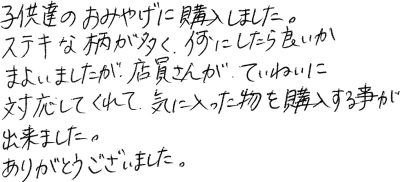 子供達のおみやげに購入しました。
ステキな柄が多く、何にしたら良いか
まよいましたが、店員さんが、ていねいに
対応してくれて、気に入った物を購入する事が
出来ました。
ありがとうございました。